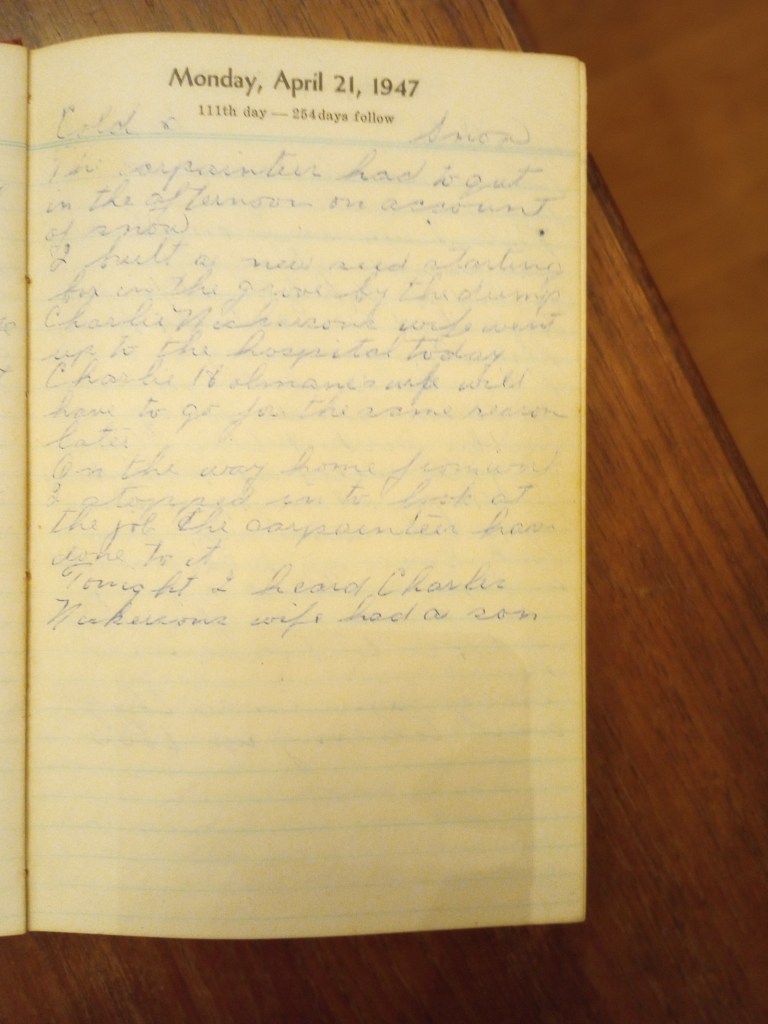 Monday, April 21, 1947
111th day — 254days follow
Cold & Snow
The carpainteer had to quit
in the afternoon on account
of snow
I built a new seed starting
box in the grove by the dump
Charlie Nickersons wife went
up to the hospital today
Charlie Holmans wife will
have to go for the same reason
later
On the way home from work
I stopped in to look at
the job the carpainteer have
done to it
Tonight I heard Charles
Nickersons wife had a son